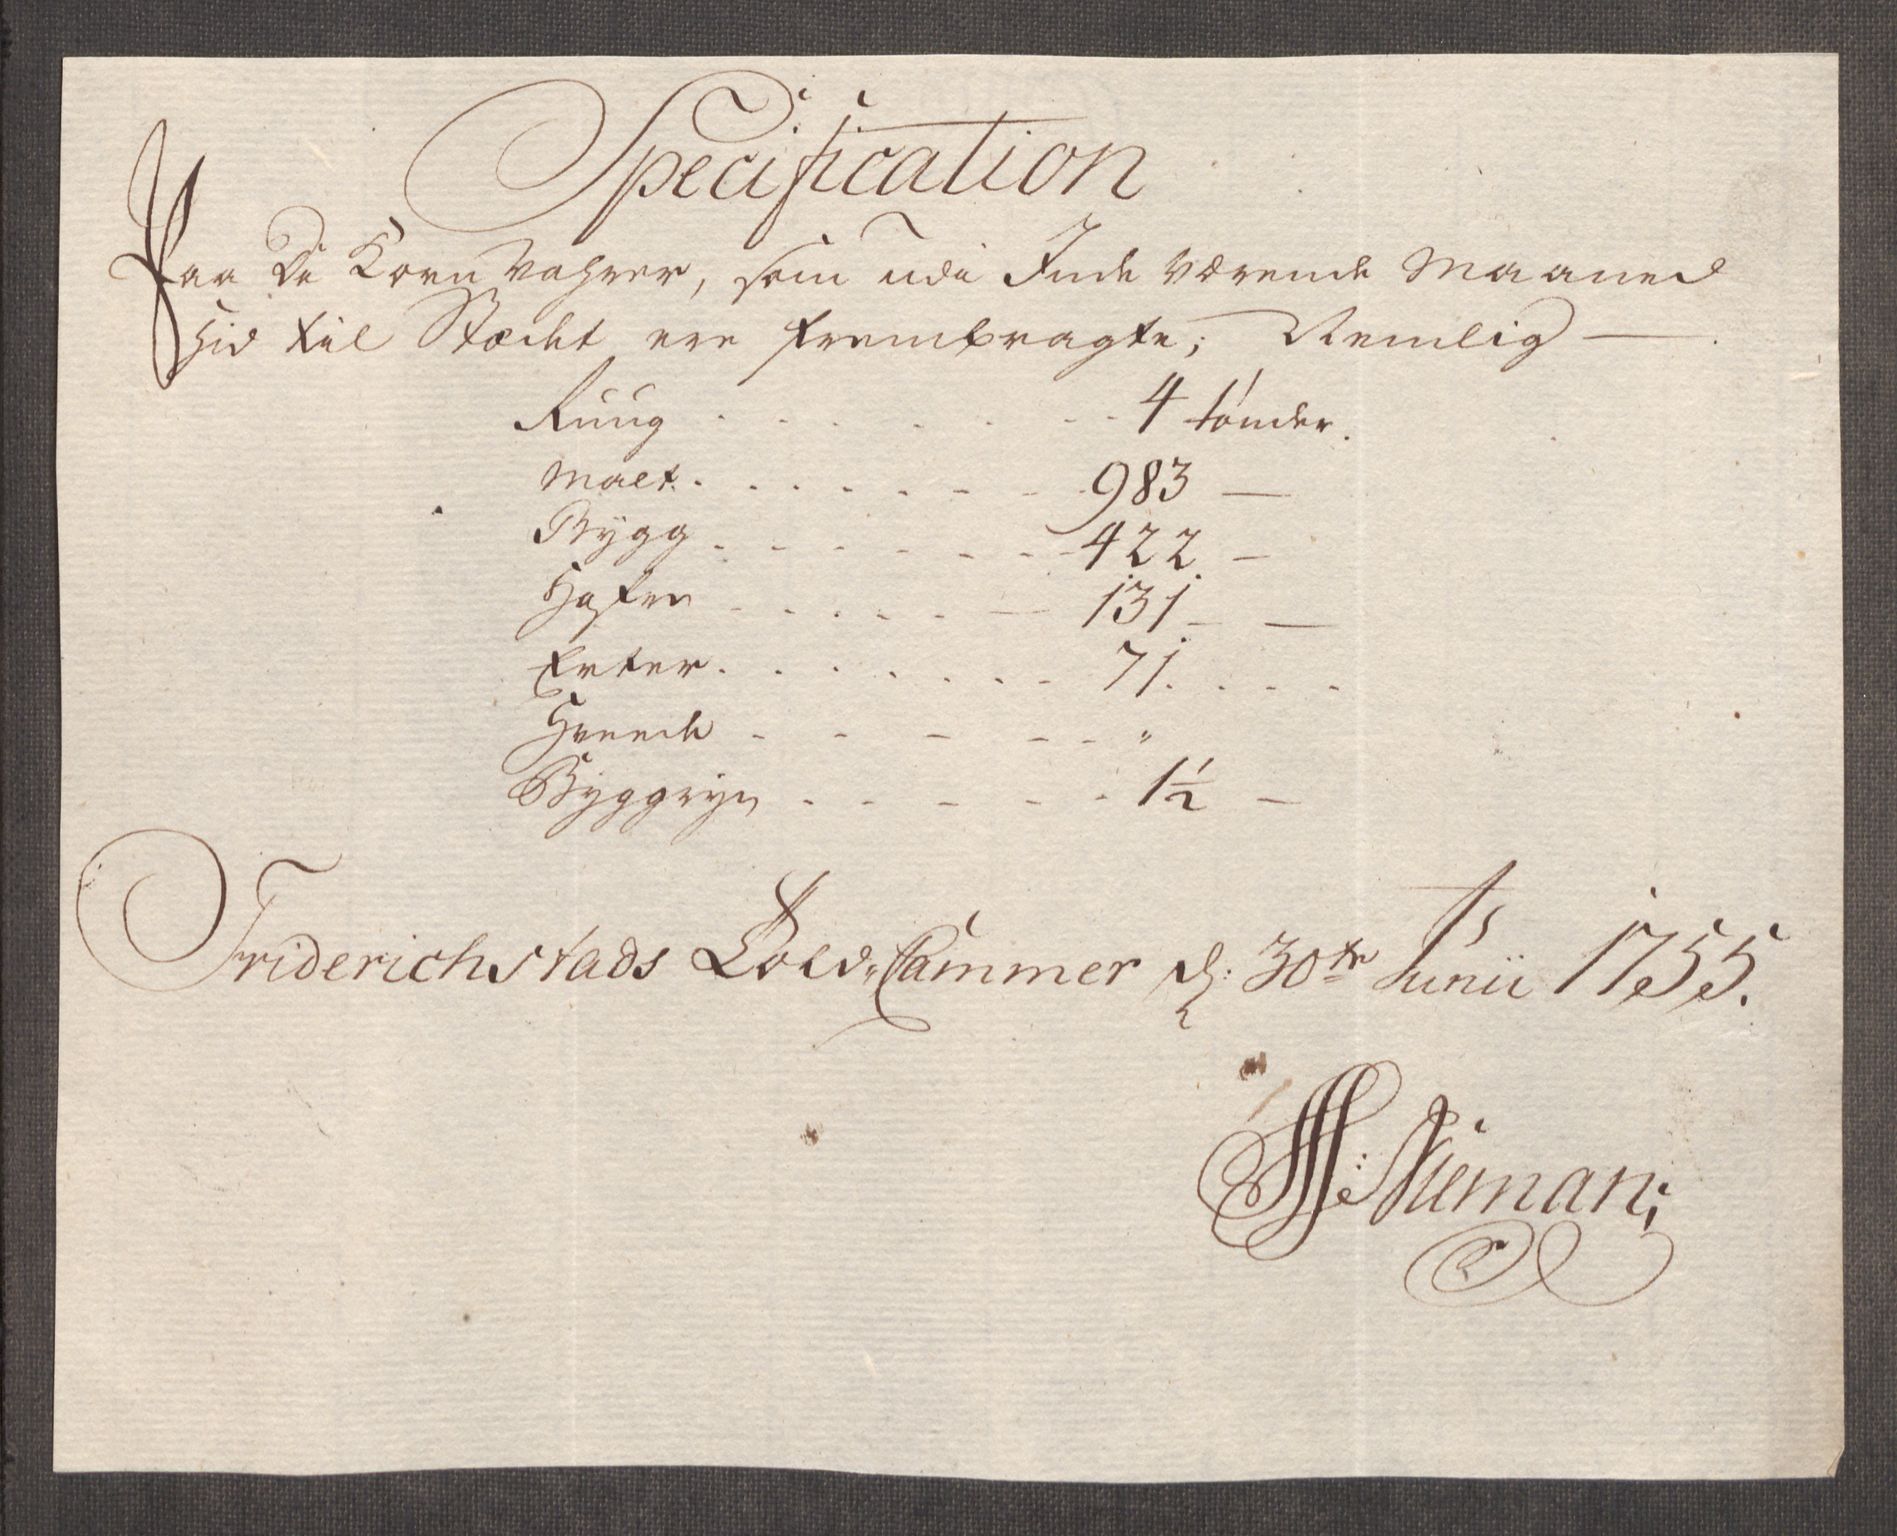 Specification
Paa De Korn Vahrer, som udi Inde værende Maaned
hid til Stædet ere frembragte; Nemlig —
Ruug . . . . . . . 4 tønder.
Malt . . . . . . . 983 —
Bygg . . . . . . . 422 —
Hafre . . . . . . . 131 —
Erter . . . . . . . 71 . . . .
Hveede - - - - - "
Byggryn . . . . . 1½ —
Friderichstads Told-Cammer d: 30te Junii 1755.
Nieman;